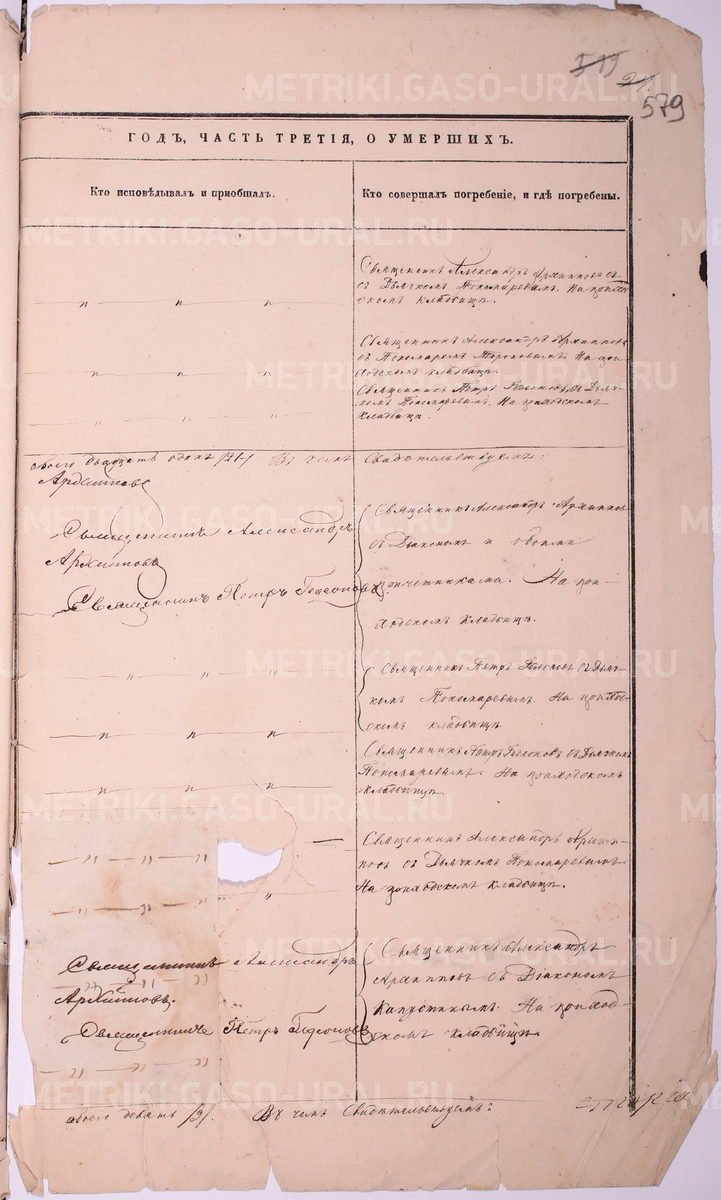 519
579
ГОДЪ, ЧАСТЬ ТРЕТІЯ, О УМЕРШИХЪ.
Кто исповѣдывалъ и пріобщалъ.
Кто совершалъ погребеніе, и гдѣ погребены.
Священникъ Александръ Архиповъ съ
съ Дьячкомъ Пономаревымъ. На приход
скомъ кладбищѣ.
— „ — „ — „
Священникъ Александръ Архиповъ
съ Пономаремъ На при
ходскомъ кладбищѣ.
— „ — „ — „
Священникъ Петръ Гедеоновъ съ Дьяч
комъ Пономаревымъ. На приходскомъ
кладбищѣ.
— „ — „ — „
обоего двадцать одинъ /21/ Въ чемъ Свидѣтельствуемъ:
Архиповъ
Священникъ Александръ
Архиповъ
Священникъ Петръ Гедеоновъ
Священникъ Александръ Архипов
съ Діакономъ и обоими
причетниками. На при-
ходскомъ кладбищѣ.
„ „ „
Священникъ Петръ Гедеоновъ съ Дьяч
комъ Пономаревымъ На приход
скомъ кладбищѣ.
— „ — „ — „
Священникъ Петръ Гедеоновъ съ Дьячкомъ
Пономаревымъ. На приходскомъ
кладбищѣ.
— „ — „ — „
Священникъ Александръ Архип
повъ съ Дьячкомъ Пономаревымъ
На приходскомъ кладбищѣ.
— „ — „ — „
— „ — „ — „ „
Священникъ Александръ
Архиповъ.
Священникъ Петръ Гедеоновъ
Священникъ Александръ
Архиповъ съ Діакономъ
Капустинымъ. На приход
скомъ кладбищѣ.
— „ — „ — „
обоего девять /9/. Въ чемъ Свидѣтельствуемъ:
METRIKI.GASO-URAL.RU